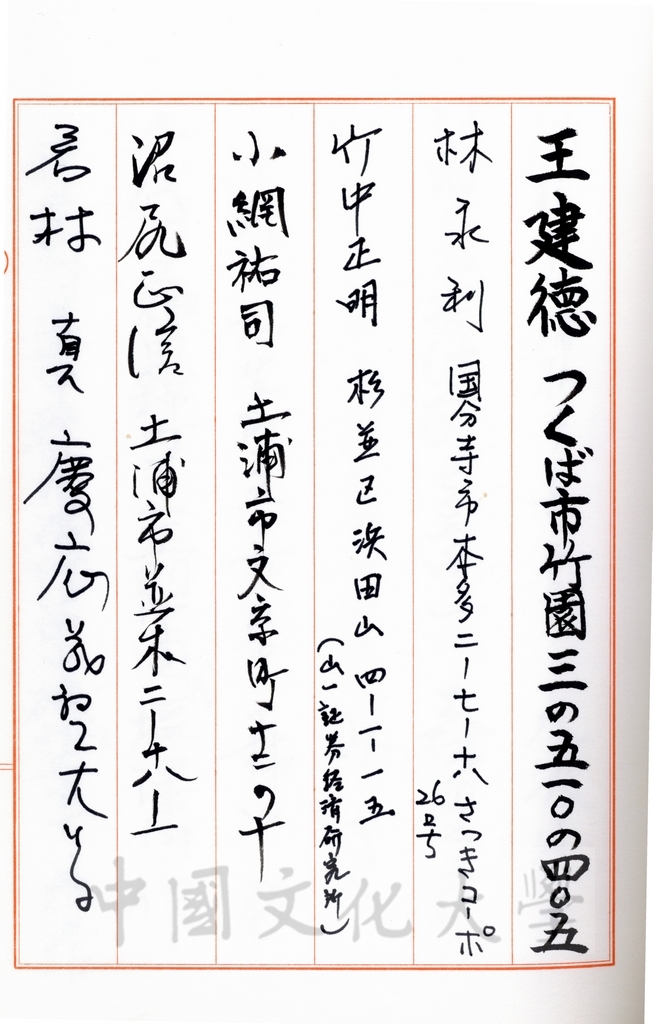 王建德 つくば市竹園三の五一〇の四〇五
林永利 国分寺市本多二ー七ー十八さつきコーポ
26号
竹中正明 杉並区浜田山四ー一ー一五
(山一証券経済研究所)
小網祐司 土浦市文京町十二の十
沼尻正信 土浦市並木二ー十八ー一
若林 真 慶応義塾大学
中國文化大學